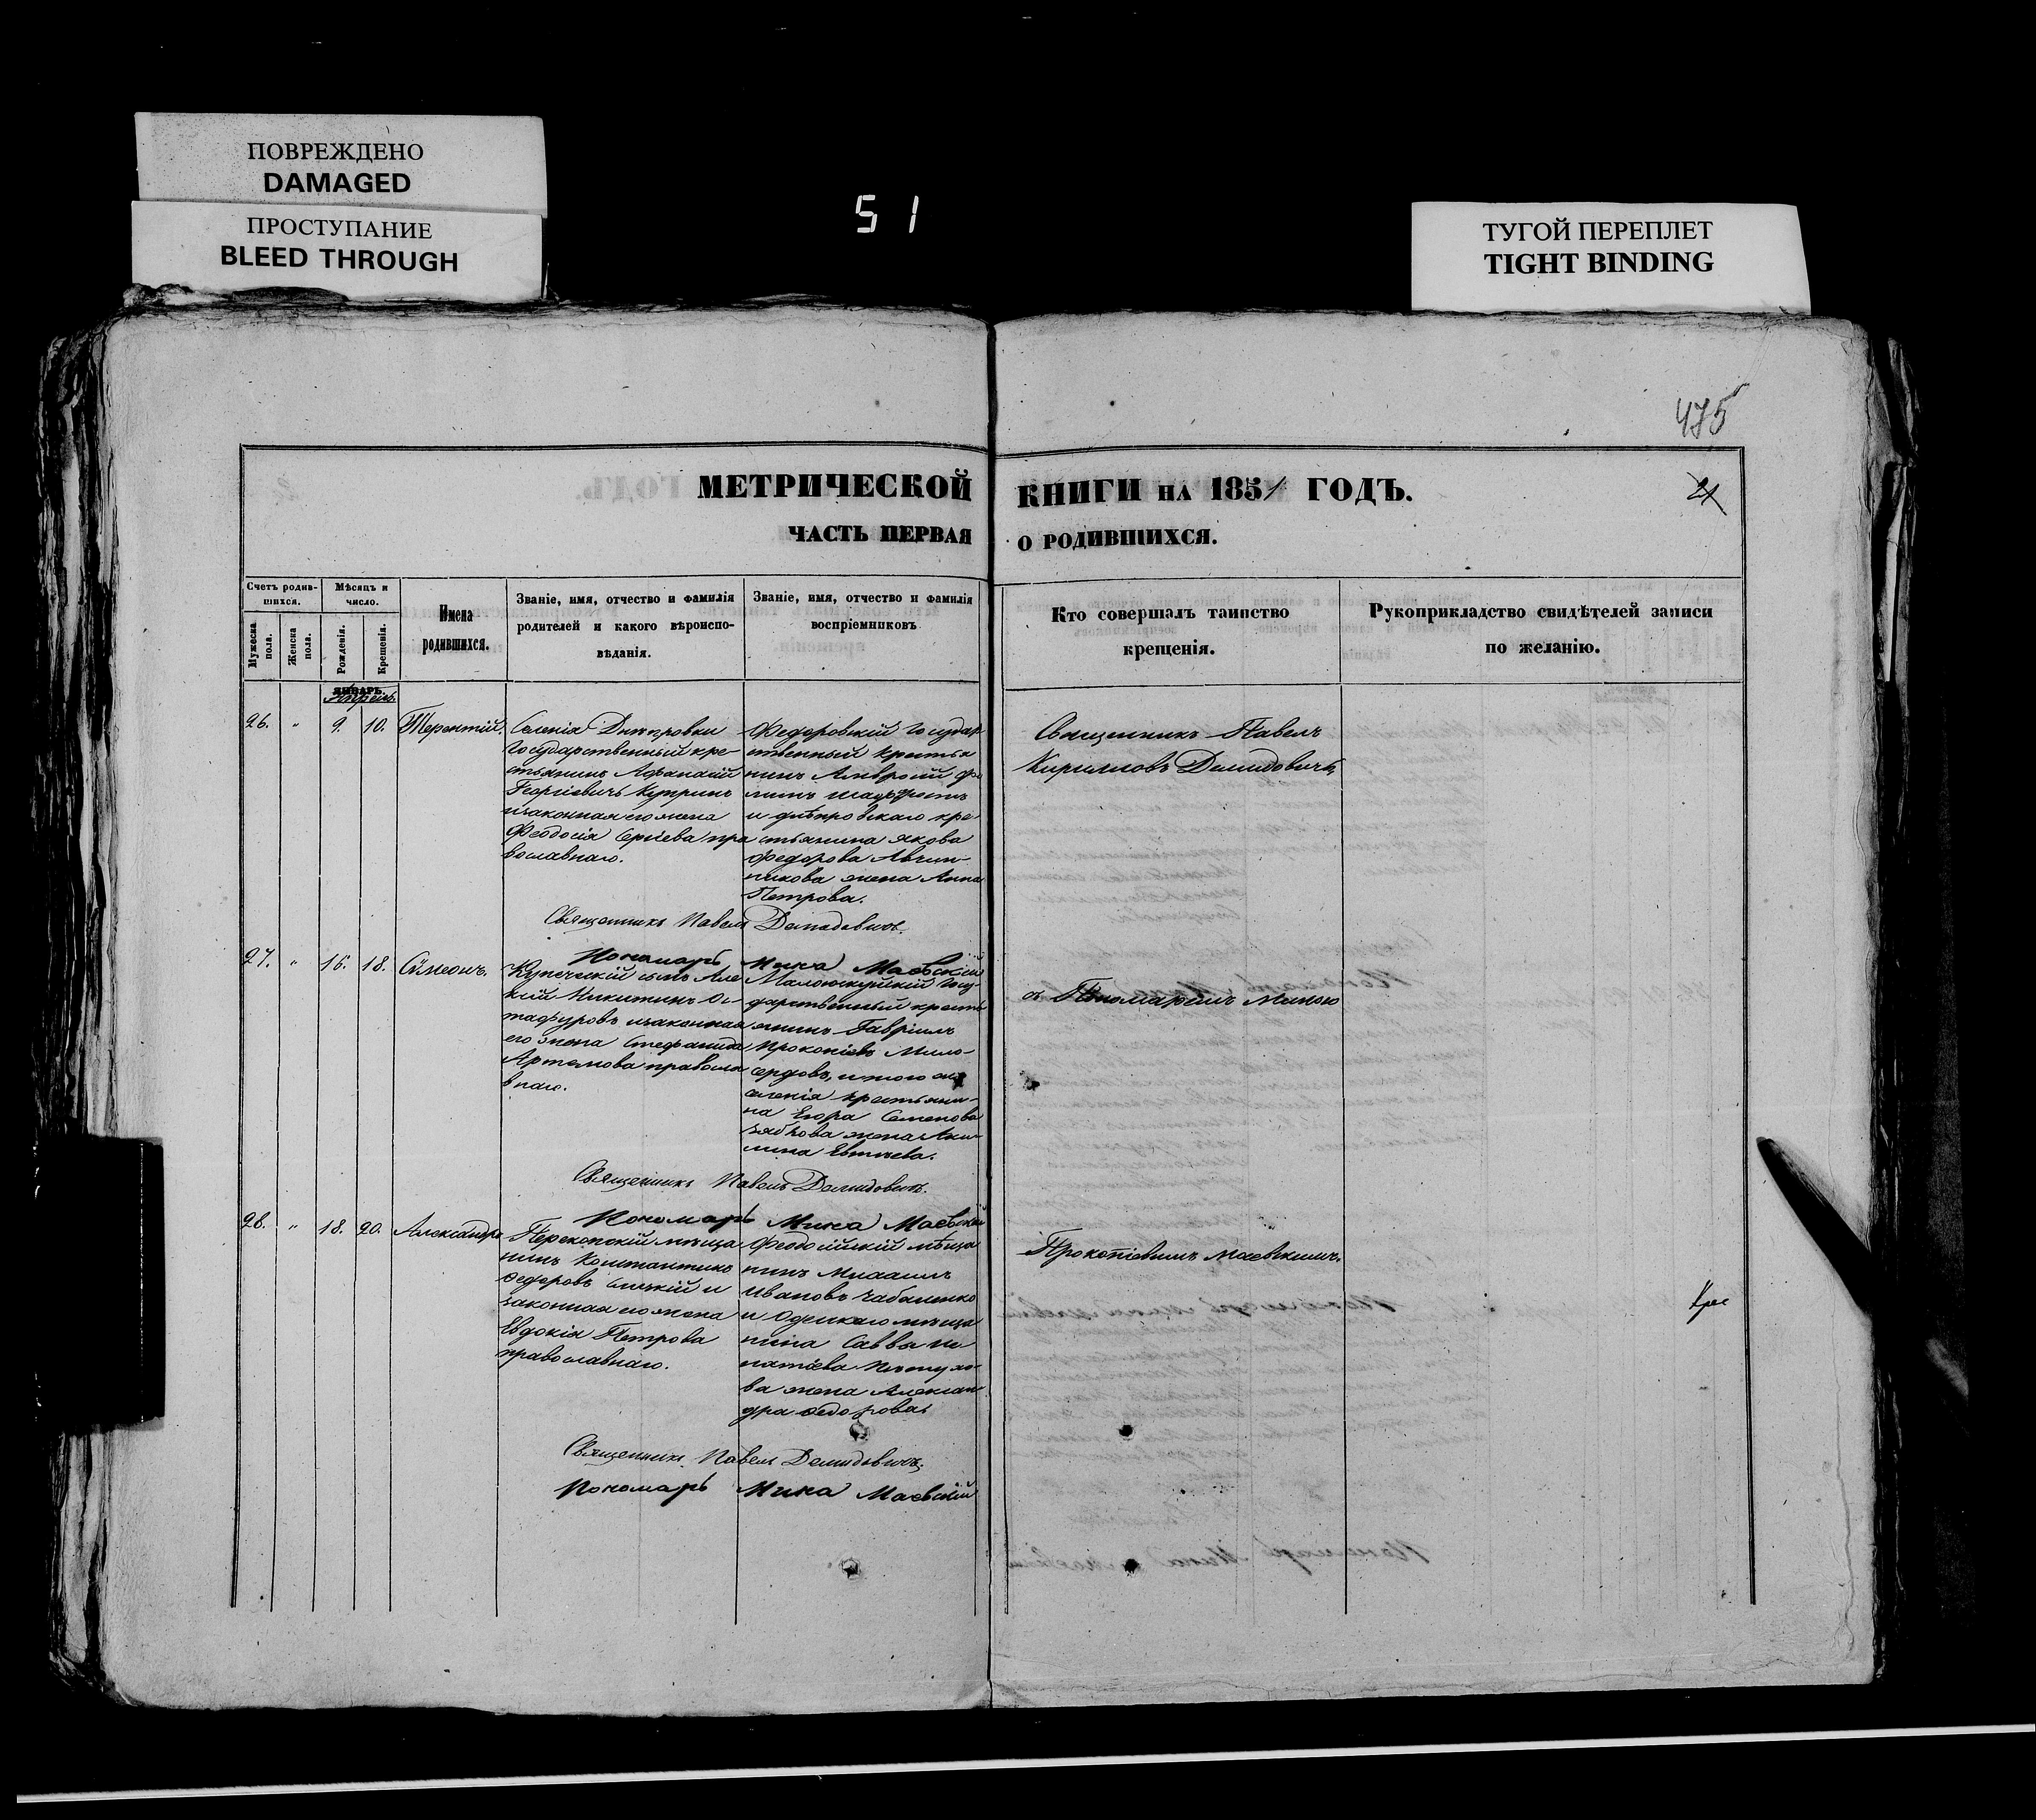 ПОВРЕЖДЕНО
DAMAGED
ПРОСТУПАНИЕ
BLEED THROUGH
51
ТУГОЙ ПЕРЕПЛЕТ
TIGHT BINDING
475
21
МЕТРИЧЕСКОЙ КНИГИ НА 1851 ГОДЪ.
ЧАСТЬ ПЕРВАЯ О РОДИВШИХСЯ.
Счетъ родив-
шихся.
Мужеска
пола.
Женска
пола.
Мѣсяцъ и
число.
Рожденія.
Крещенія.
Имена
родившихся.
Званіе, имя, отчество и фамилія
родителей и какого вѣроиспо-
вѣданія.
Званіе, имя, отчество и фамилія
воспріемниковъ
Кто совершалъ таинство
крещенія.
Рукоприкладство свидѣтелей записи
по желанію.
ЯНВАРЬ.
Апрель
26. " 9. 10. Терентій.
Селенія Днепровки
Государственный кре-
стьянинъ Афанасій
Георгіевичъ Куприн
изаконная его жена
Феодосія Сергіева пра
вославнаго.
Федоровскій Государ
ственный крестья
нинъ Амвросій
и днѣпровскаго кре-
стьянина Якова
Федорова
жена Анна
Петрова.
Священникъ Павелъ
Кирилловъ Демидовичъ
Священникъ Павелъ Демидовичъ.
Пономарь Мина Маевскій
27. " 16. 18. Сѵмеонъ.
Купеческій сынъ Але
ксій Никитинъ
изаконная
его жена Стефанида
Артемова правосла
внаго.
Государственный крестья
нинъ Гавріилъ
Прокопіевъ Мило-
сердовъ, и того же
селенія крестьяни-
на Егора Семенова
жена Аки-
лина
съ Пономаремъ Миною
Священникъ Павелъ Демидовичъ.
Пономарь Мина Маевскій
28. " 18. 20. Александръ
Перекопскій мѣща
нинъ Константинъ
Федоровъ и
законная его жена
Евдокія Петрова
православнаго.
Феодосійскій мѣща
нинъ Михаилъ
Ивановъ Чабаненко
и Одескаго мѣща
нина Саввы
жена Алексан
дра Федорова
Прокопіевымъ Маевскимъ.
Священникъ Павелъ Демидовичъ.
Пономарь Мина Маевскій